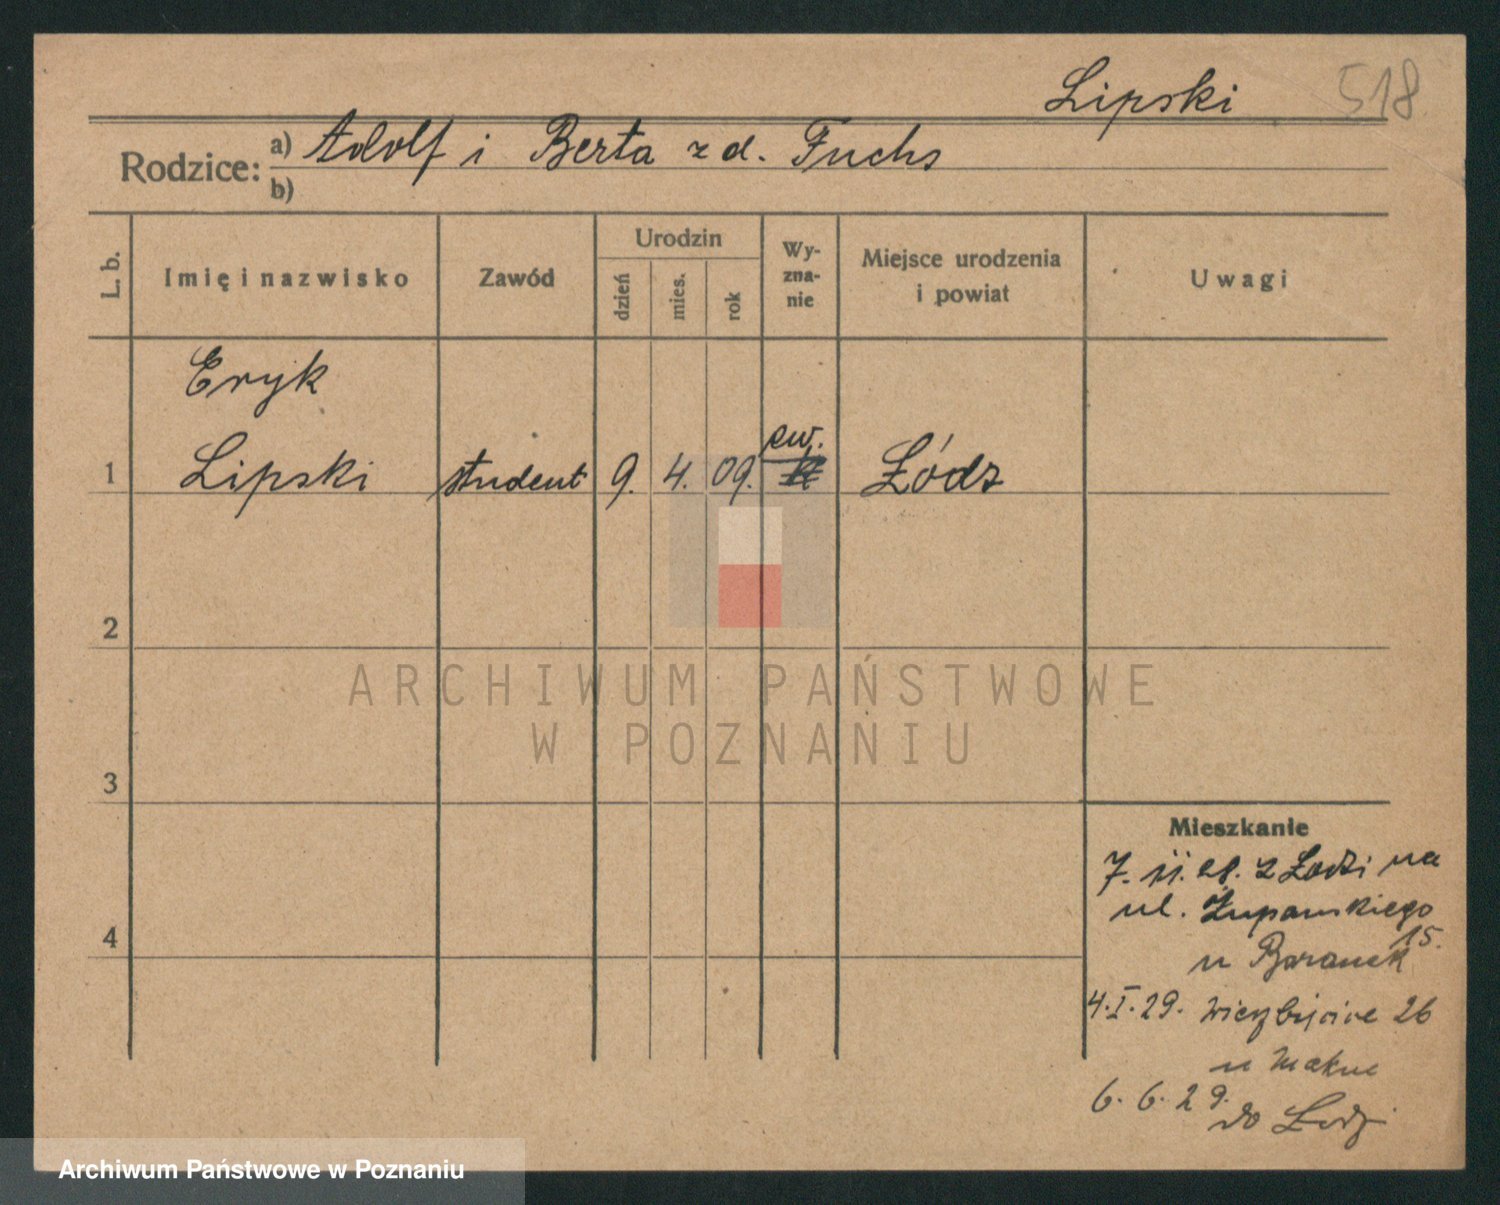 Lipski
518
Rodzice: a) Adolf i Berta z d. Fuchs
b)
L. b.
Imię i nazwisko
Zawód
Urodzin
dzień
mies.
rok
Wy-
zna-
nie
Miejsce urodzenia
i powiat
Uwagi
Eryk
1 Lipski student 9. 4. 09. ew. Łódz
2
3
4
Mieszkanie
7. 11. 28. z Łodzi na
ul. Żupańskiego
15.
u Baranek
4. I. 29. Wierzbięcice 26
u
6. 6. 29.
do Łodzi
ARCHIWUM PAŃSTWOWE
W POZNANIU
Archiwum Państwowe w Poznaniu